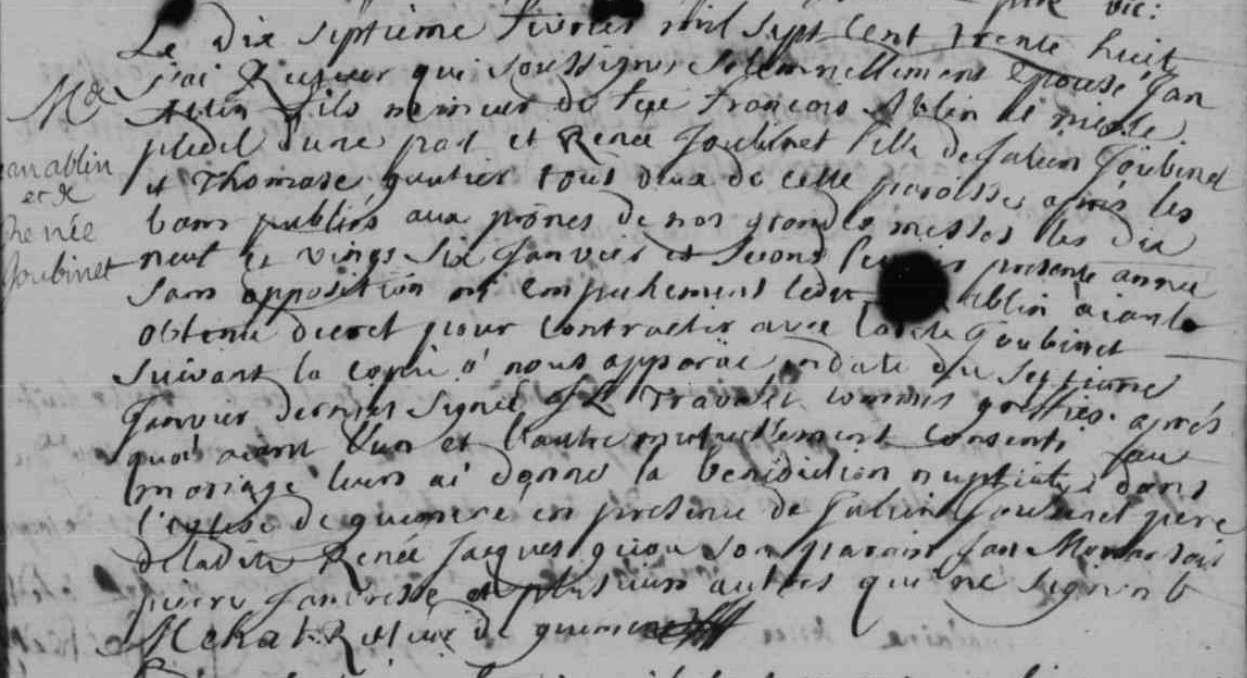 Le dix septième fevrier mil sept cent trente huit
j'ai Recteur qui soussigne solemnellement Epousé Jan
Ablin fils mineur de feu François Ablin et
d'une part et Renée Joubinet fille de Julien Joubinet
et Thomase gautier tous deux de cette paroisse après les
bans publiés aux prônes de nos grandes messes les dix
neuf et vingt six Janvier et second presente année
sans opposition ni empechement ledit Ablin aiant
obtenu decret pour contracter avec ladite Joubinet
suivant la copie à nous apparüe en date du septieme
Janvier dernier signée commis greffier après
quoi aiant l'un et l'autre mutuellement consenti au
mariage leurs ai donné la benediction nuptiale dans
l'eglise de guemene en presence de Julien Joubinet pere
de ladite Renée Jacques son parain Jan
pierre et plusieurs autres qui ne signent
Mehat Recteur de guemene
M
Jan ablin
et
Renée
Joubinet